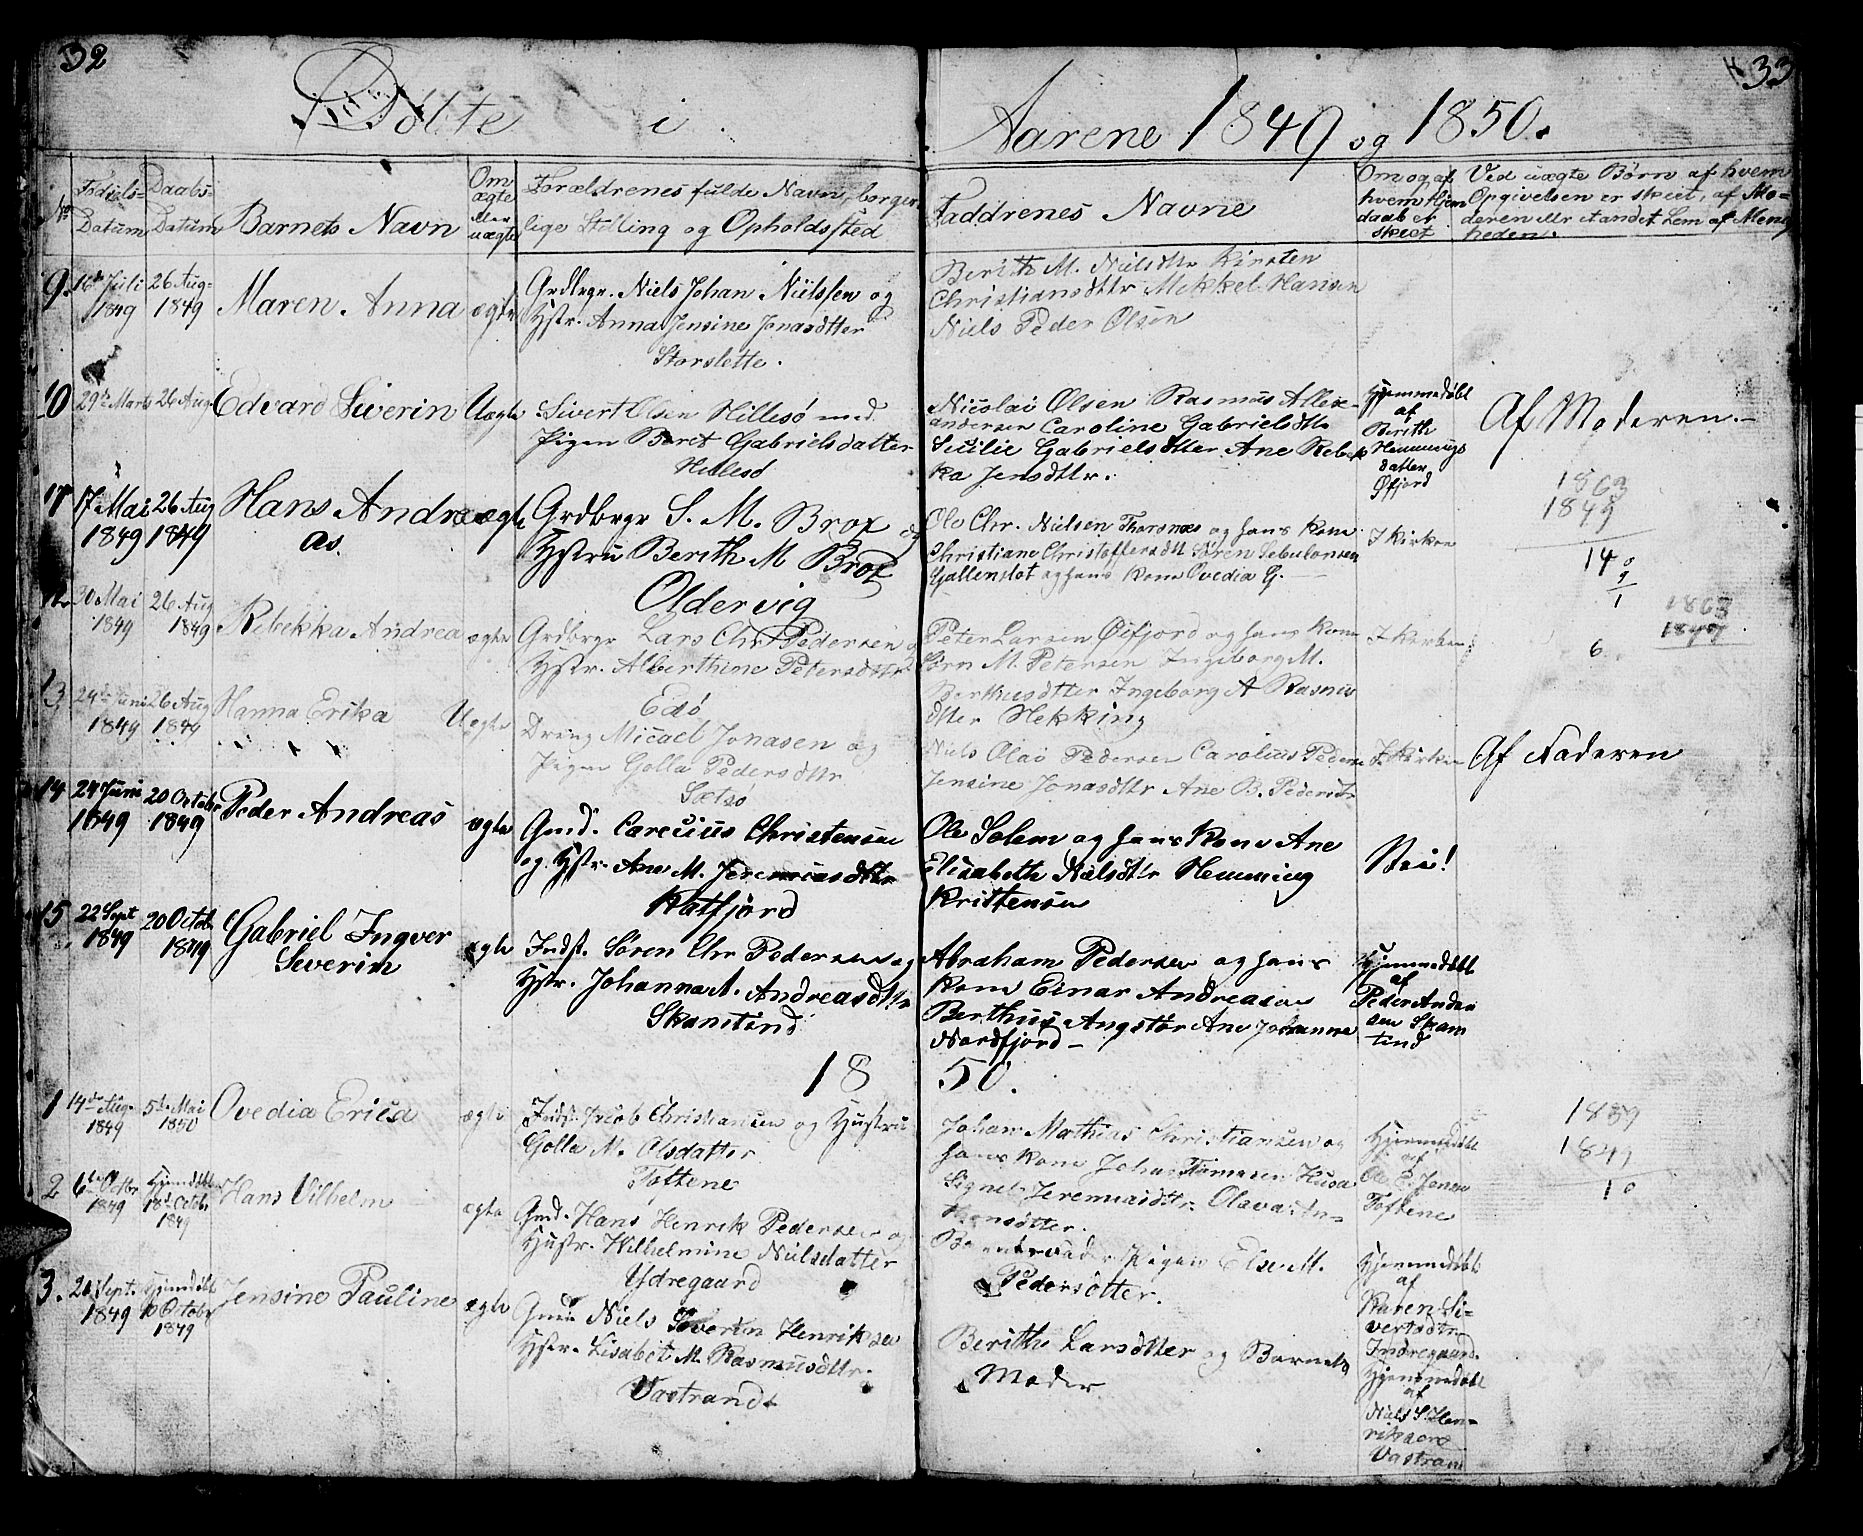 32
Döbte i
Aarene 1849 og 1850.
33
No
Fødsels-
Datum
Daabs-
Datum
Barnets Navn
Om
ægte
eller
uægte
Forældrenes fulde Navn, borger
lige Stilling og Opholdssted
Faddrenes Navne
Om og af
hvem Hjem
daab er
skeet
Ved uægte Børn af hvem
Opgivelsen er skeet, af Mo-
deren eller et andet Lem af Menig
heden.
9. 16de Juli
1849
26 Aug-
1849
Maren Anna
ægte
Grdbrgr. Niels Johan Nielssen og
Hstr. Anna Jensine Jonasdtter
Storslette.
Berith M. Nielsdttr Kirsten
Christiansdttr Mekkel Hansen
Niels Peder Olsen
10
29de Marts
26 Aug
Edvard Siverin
Uægte
Sivert Olsen Hillesö med
Pigen Beret Gabrielsdatter
Hillesö
Nicolai Olsen Rasmus Allex-
andersen Caroline Gabrielsdttr
Sicilie Gabrielsdtter Ane Rebek
ka Jensdttr.
Hjemmedöbt
af
Berith
Hemmings
datter
Öfjord
Af Moderen.-
11
17 Mai
1849
26 Aug
1849
Hans Andre
as.
ægte
Grdbrgr S. M. Brox og
Hstru Berith M Brox
Oldervig
Ole Chr. Nielsen Thorsnæs og hans Kone
Christiane Christoffersdtt Sören Sebulonsen
Gallenslot og hans Kone Ovedia G.-
I Kirken
1863
1849
14
12
30 Mai
1849
26 Aug
1849
Rebekka Andrea
ægte
Grdbrgr Lars Chr Pedersen og
Hstr. Alberthine Petersdttr
Edö
Peter Larsen Öifjord og hans Kone
Sörn M. Petersen Ingeborg M.
Berthusdtter Ingeborg A Rasmus
dtter Hekking
I Kirken
6
1863
1849
13
24de Juni
1849
26 Aug
1849
Hanna Erika
Uægte
Dreng Micael Jonasen og
Pigen Golla Pedersdttr
Sætsö
Niels Olai Pedersen Carolius Peders
Jensine Jonasdttr Ane B. Pedersdtr
I Kirken
Af Faderen
14
24 Juni
1849
20 Octobr
1849
Peder Andreas
ægte
Gmd. Carelius Christensen
og Hstr. Ane M. Jeremiasdttr
Katfjord
Ole Solem og hans Kone Ane
Elisabeth Nielsdttr Hemming
Kristensen
Nei!
15
22 Sept
1849
20 Octobr
1849
Gabriel Ingver
Severin
ægte
Indst. Sören Chr Pedersen og
Hstr. Johanna A. Andreasdttr
Skamtind
Abraham Pedersen og hans
Kone Einar Andreasen
Berthus Angstör Ane Johanna
Nordfjord-
Hjemmedöbt
af
Peder Andr
sen Skam
tind
18 50.
1
14de Aug.
1849
5te Mai
1850
Ovedia Erica
ægte
Indst. Jacob Christiansen og Hustru
Golla M. Olsdatter
Toftene
Johan Mathias Christiansen og
hans Kone Johan Thomasen Husa
Signel Jeremiasdttr Olava An-
Hjemmedöbt
af
Ole E. Jensen
Toftene
1859
1849
10
2
6te Octbr
1849
Hjemdöbt
18de Octobr
1849
Hans Vilhelm
ægte
Gmd. Hans Henrik Pedersen og
Hustr. Wilhelmine Nielsdatter
Ydregaard
Pigen Else M.
Pedersdtter.
Hjemmedöbt
af
Karen Si-
vertsdtr
Indregaard.
3.
Sept.
1849
Hjemdöbt
10 Octobr
1849
Jensine Pauline
ægte
Gmd Niels Severin Henriksen
Hstr. Lisabet M. Rasmusdttr.
Vastrand
Berith Larsdtter og Barnets
Moder
Hjemmedöbt
af
Niels S. Hen-
riksen
Vastrand